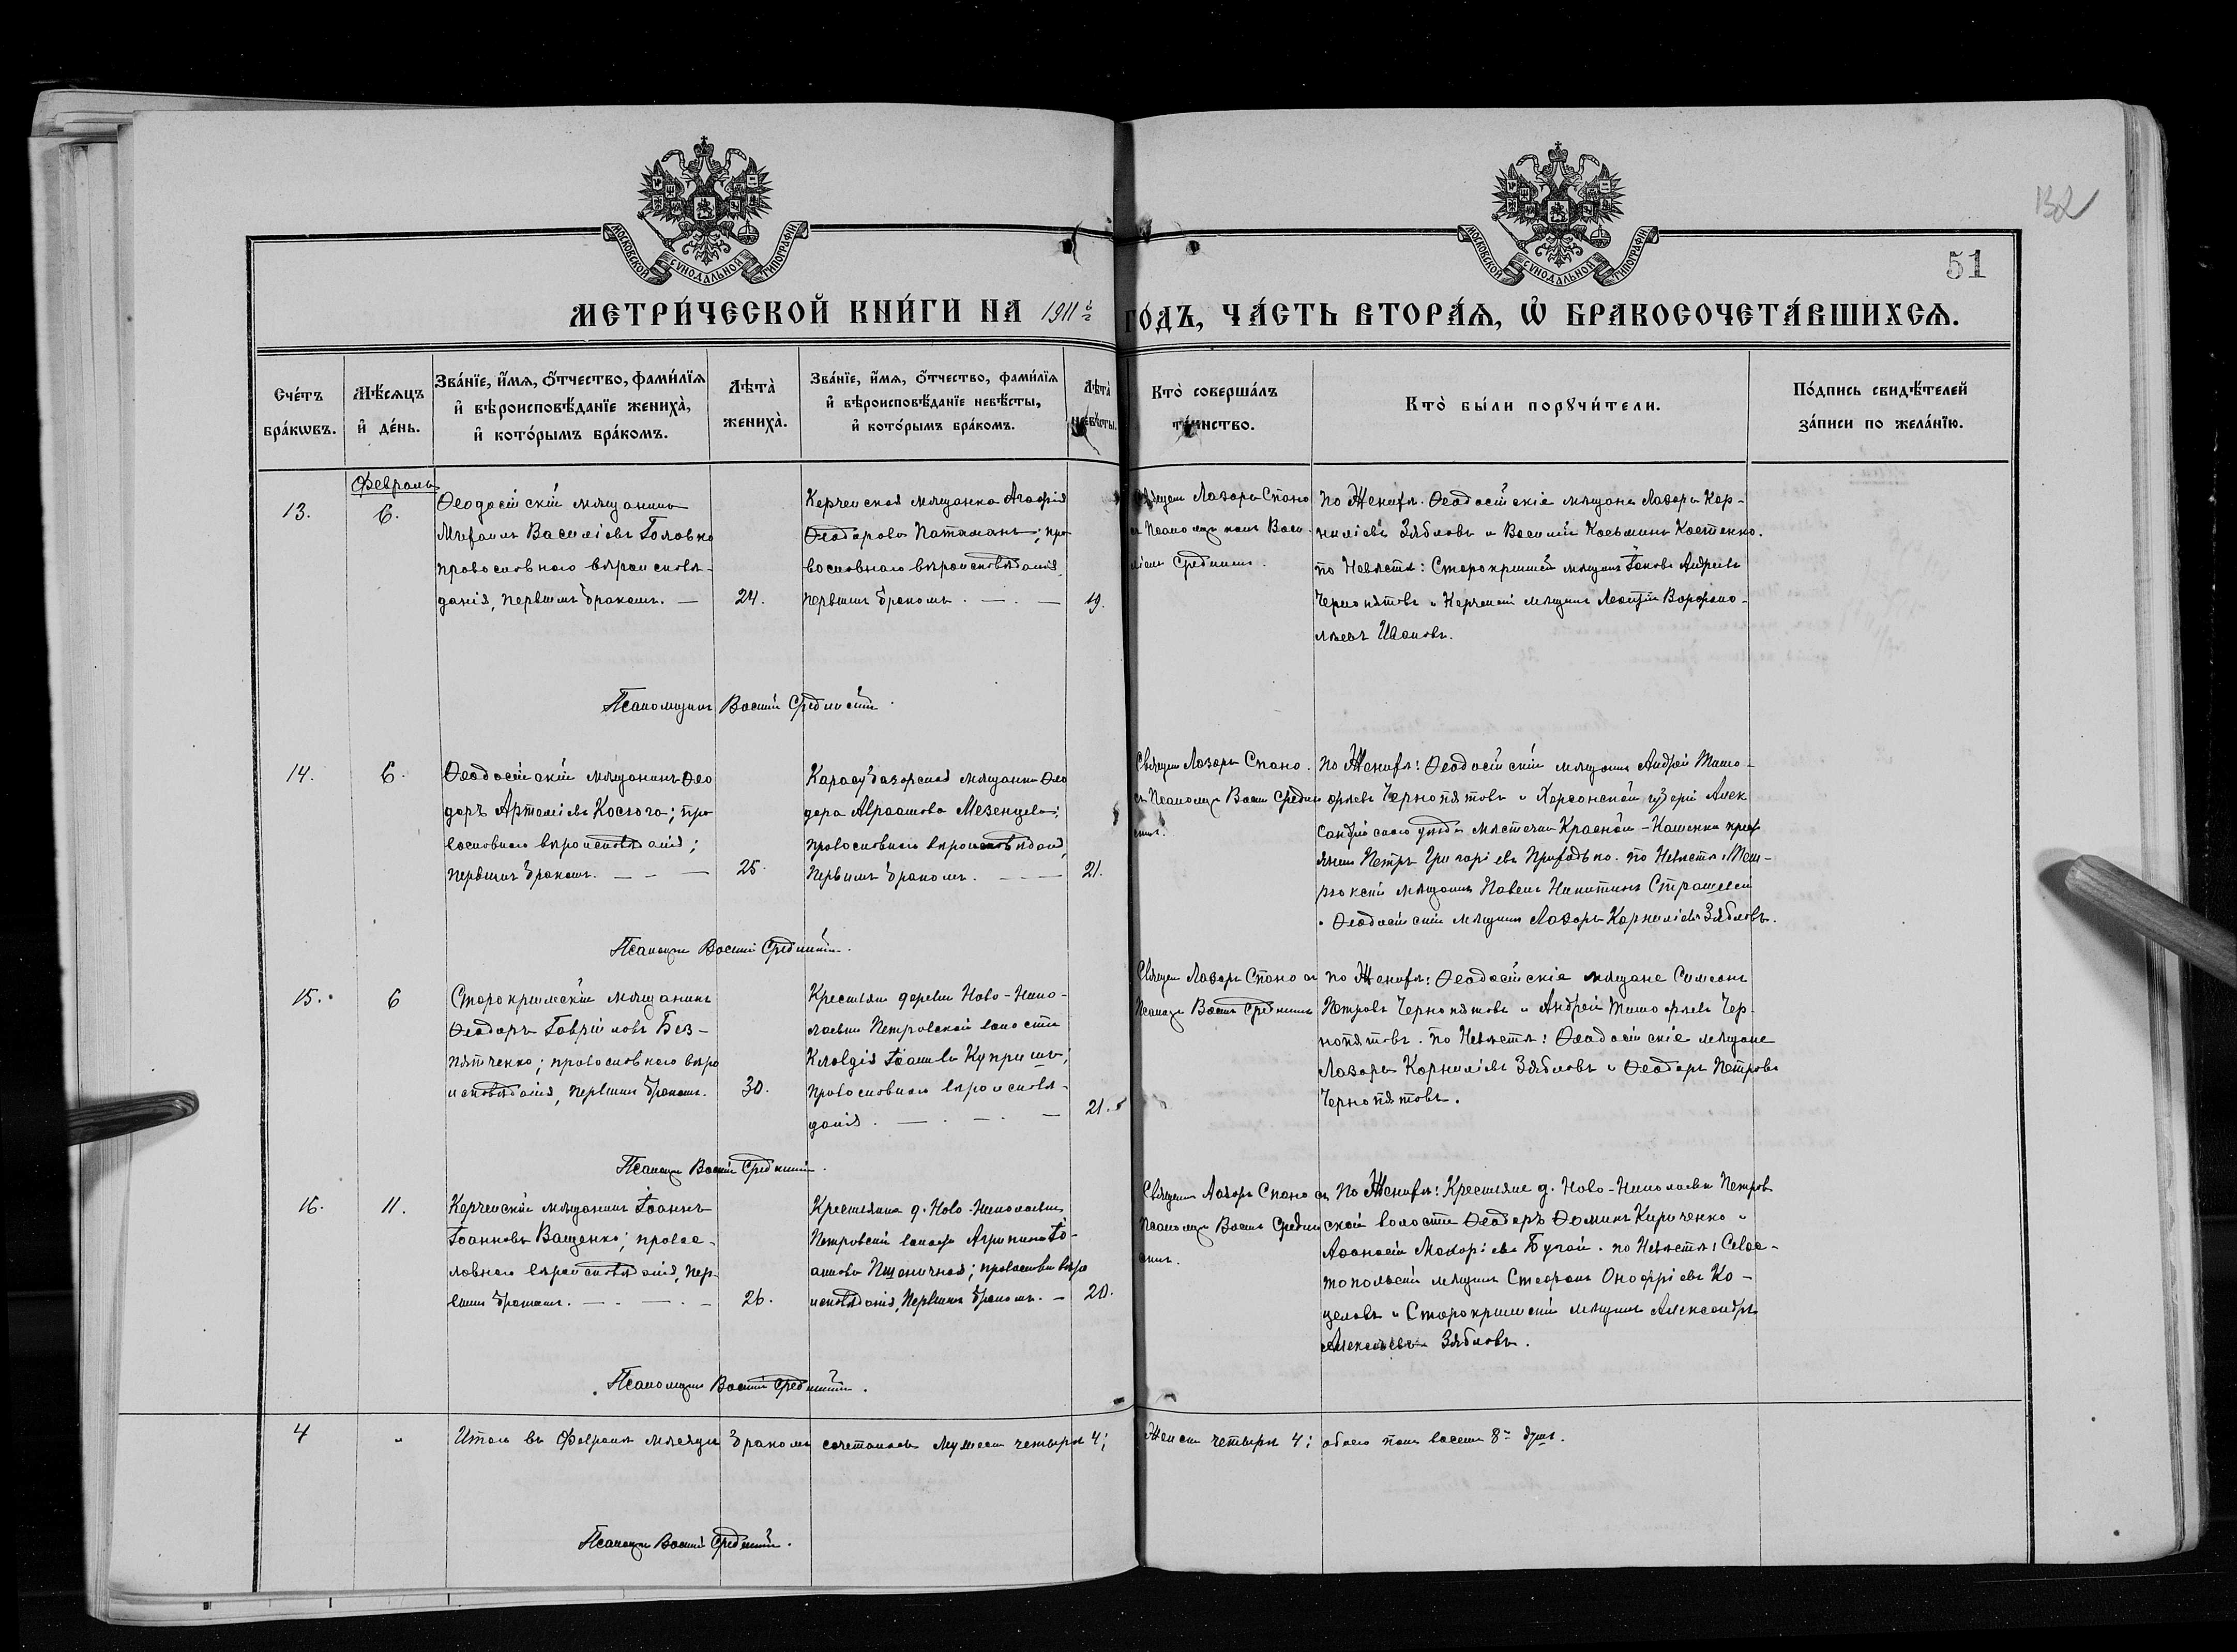 132
51
МОСКОВСКОЙ СѴНОДАЛЬНОЙ ТИПОГРАФІИ
МОСКОВСКОЙ СѴНОДАЛЬНОЙ ТИПОГРАФІИ
МЕТРИ́ЧЕСКОЙ КНИ́ГИ НА 1911й ГО́ДЪ, ЧА́СТЬ ВТОРА́Я, Ѡ҆ БРАКОСОЧЕТА́ВШИХСЯ.
Сче́тъ
бра́кѡвъ.
Мѣ́сяцъ
и҆ де́нь.
Зва́нїе, и҆́мя, ѻ҆́тчество, фами́лїя
и҆ вѣроисповѣ́данїе жениха̀,
и҆ кото́рымъ бра́комъ.
Лѣта̀
жениха̀.
Зва́нїе, и҆́мя, ѻ҆́тчество, фами́лїя
и҆ вѣроисповѣ́данїе невѣ́сты,
и҆ кото́рымъ бра́комъ.
Лѣта̀
невѣ́сты.
Кто̀ соверша́лъ
та́инство.
Кто̀ бы́ли порꙋчи́тели.
По́дпись свидѣ́телей
за́писи по жела́нїю.
Февраль
13.
6.
Ѳеодосійскій мѣщанинъ
Михаилъ Василіевъ Головко
православнаго вѣроисповѣ-
данія, первымъ бракомъ. —
24.
Керченская мѣщанка Агафія
Ѳеодорова Патаманъ; пра-
вославнаго вѣроисповѣданія,
первымъ бракомъ. — . —
19.
Священ Лазарь Спано
съ Псаломщикомъ Васи-
ліемъ Среднимъ.
По Женихѣ. Ѳеодосійскіе мѣщане Лазарь Кор-
ниліевъ Зябловъ и Василій Косьминъ Костенко.
по Невѣстѣ: Старокрымскій мѣщан Іаковъ Андреевъ
Чернопятовъ и Керченскій мѣщанинъ Леонтій Варфоло-
мѣевъ Ивановъ.
Псаломщикъ Василій Средний
14.
6.
Ѳеодосійскій мѣщанинъ Ѳео
доръ Артеміевъ Косюга; пра
вославнаго вѣроисповѣданія;
первымъ бракомъ. — — —
25.
Карасубазарская мѣщанка Ѳео
дора Авраамова Мезенцева;
православнаго вѣроисповѣдан,
Первымъ бракомъ. — —
21.
Священ Лазарь Спано.
съ Псаломщ Васил Средни
мъ.
По Женихѣ: Ѳеодосійскій мѣщанинъ Андрей Тимо-
ѳеевъ Чернопятовъ и Херсонской губерніи Алек
сандрійскаго уѣзда мѣстечка Красной-Каменки крест
янинъ Петръ Григоріевъ Приходько. по Невѣстѣ:
мѣщанинъ Павелъ Никитинъ
и Ѳеодосійскій мѣщанинъ Лазарь Корниліевъ Зябловъ.
Псаломщ Василій Средний.
15.
6
Старокрымскій мѣщанинъ
Ѳеодоръ Гавріиловъ Без-
пятченко; православнаго вѣро
исповѣданія, первымъ бракомъ.
30.
Крестьян деревни Ново-Нико-
лаевки Петровской волости
Клавдія Іоаннова Купришъ;
православнаго вѣроисповѣ-
данія. — . — . —
21.
Священ Лазарь Спано съ
Псаломщ Васил Среднимъ
по Женихѣ: Ѳеодосійскіе мѣщане Симеонъ
Петровъ Чернопятовъ и Андрей Тимоѳеевъ Чер-
нопятовъ. по Невѣстѣ: Ѳеодосійскіе мѣщане
Лазарь Корниліевъ Зябловъ и Ѳеодоръ Петровъ
Чернопятовъ.
Псаломщ Василій Средний.
16.
11.
Керченскій мѣщанинъ Іоаннъ
Іоанновъ Ващенко; правос-
лавнаго вѣроисповѣданія, пер-
вымъ бракомъ. — . — . —
26.
Крестьянка д. Ново-Николаевки
Петровской волости Агрипина Іо-
аннова Пшеничная; православн вѣро
исповѣданія, Первымъ бракомъ. —
20.
Священ Лазарь Спано съ
Псаломщ Васил Средни
мъ.
По Женихѣ: Крестьяне д. Ново-Николаевки Петров
ской волости Ѳеодоръ Ѳоминъ Кириченко и
Аѳанасій Макаріевъ Бугай. по Невѣстѣ: Севас-
топольскій мѣщанинъ Стефанъ Онофріевъ Ко-
целовъ и Старокрымскій мѣщанинъ Александръ
Алексѣевъ Зябловъ.
Псаломщ Василій Средний.
4
„
Итого въ Февралѣ мѣсяцѣ бракомъ сочеталось Мужеска четыре 4; Женска четыре 4; обоего пола восемь 8 душъ.
Псаломщ Василій Средний.